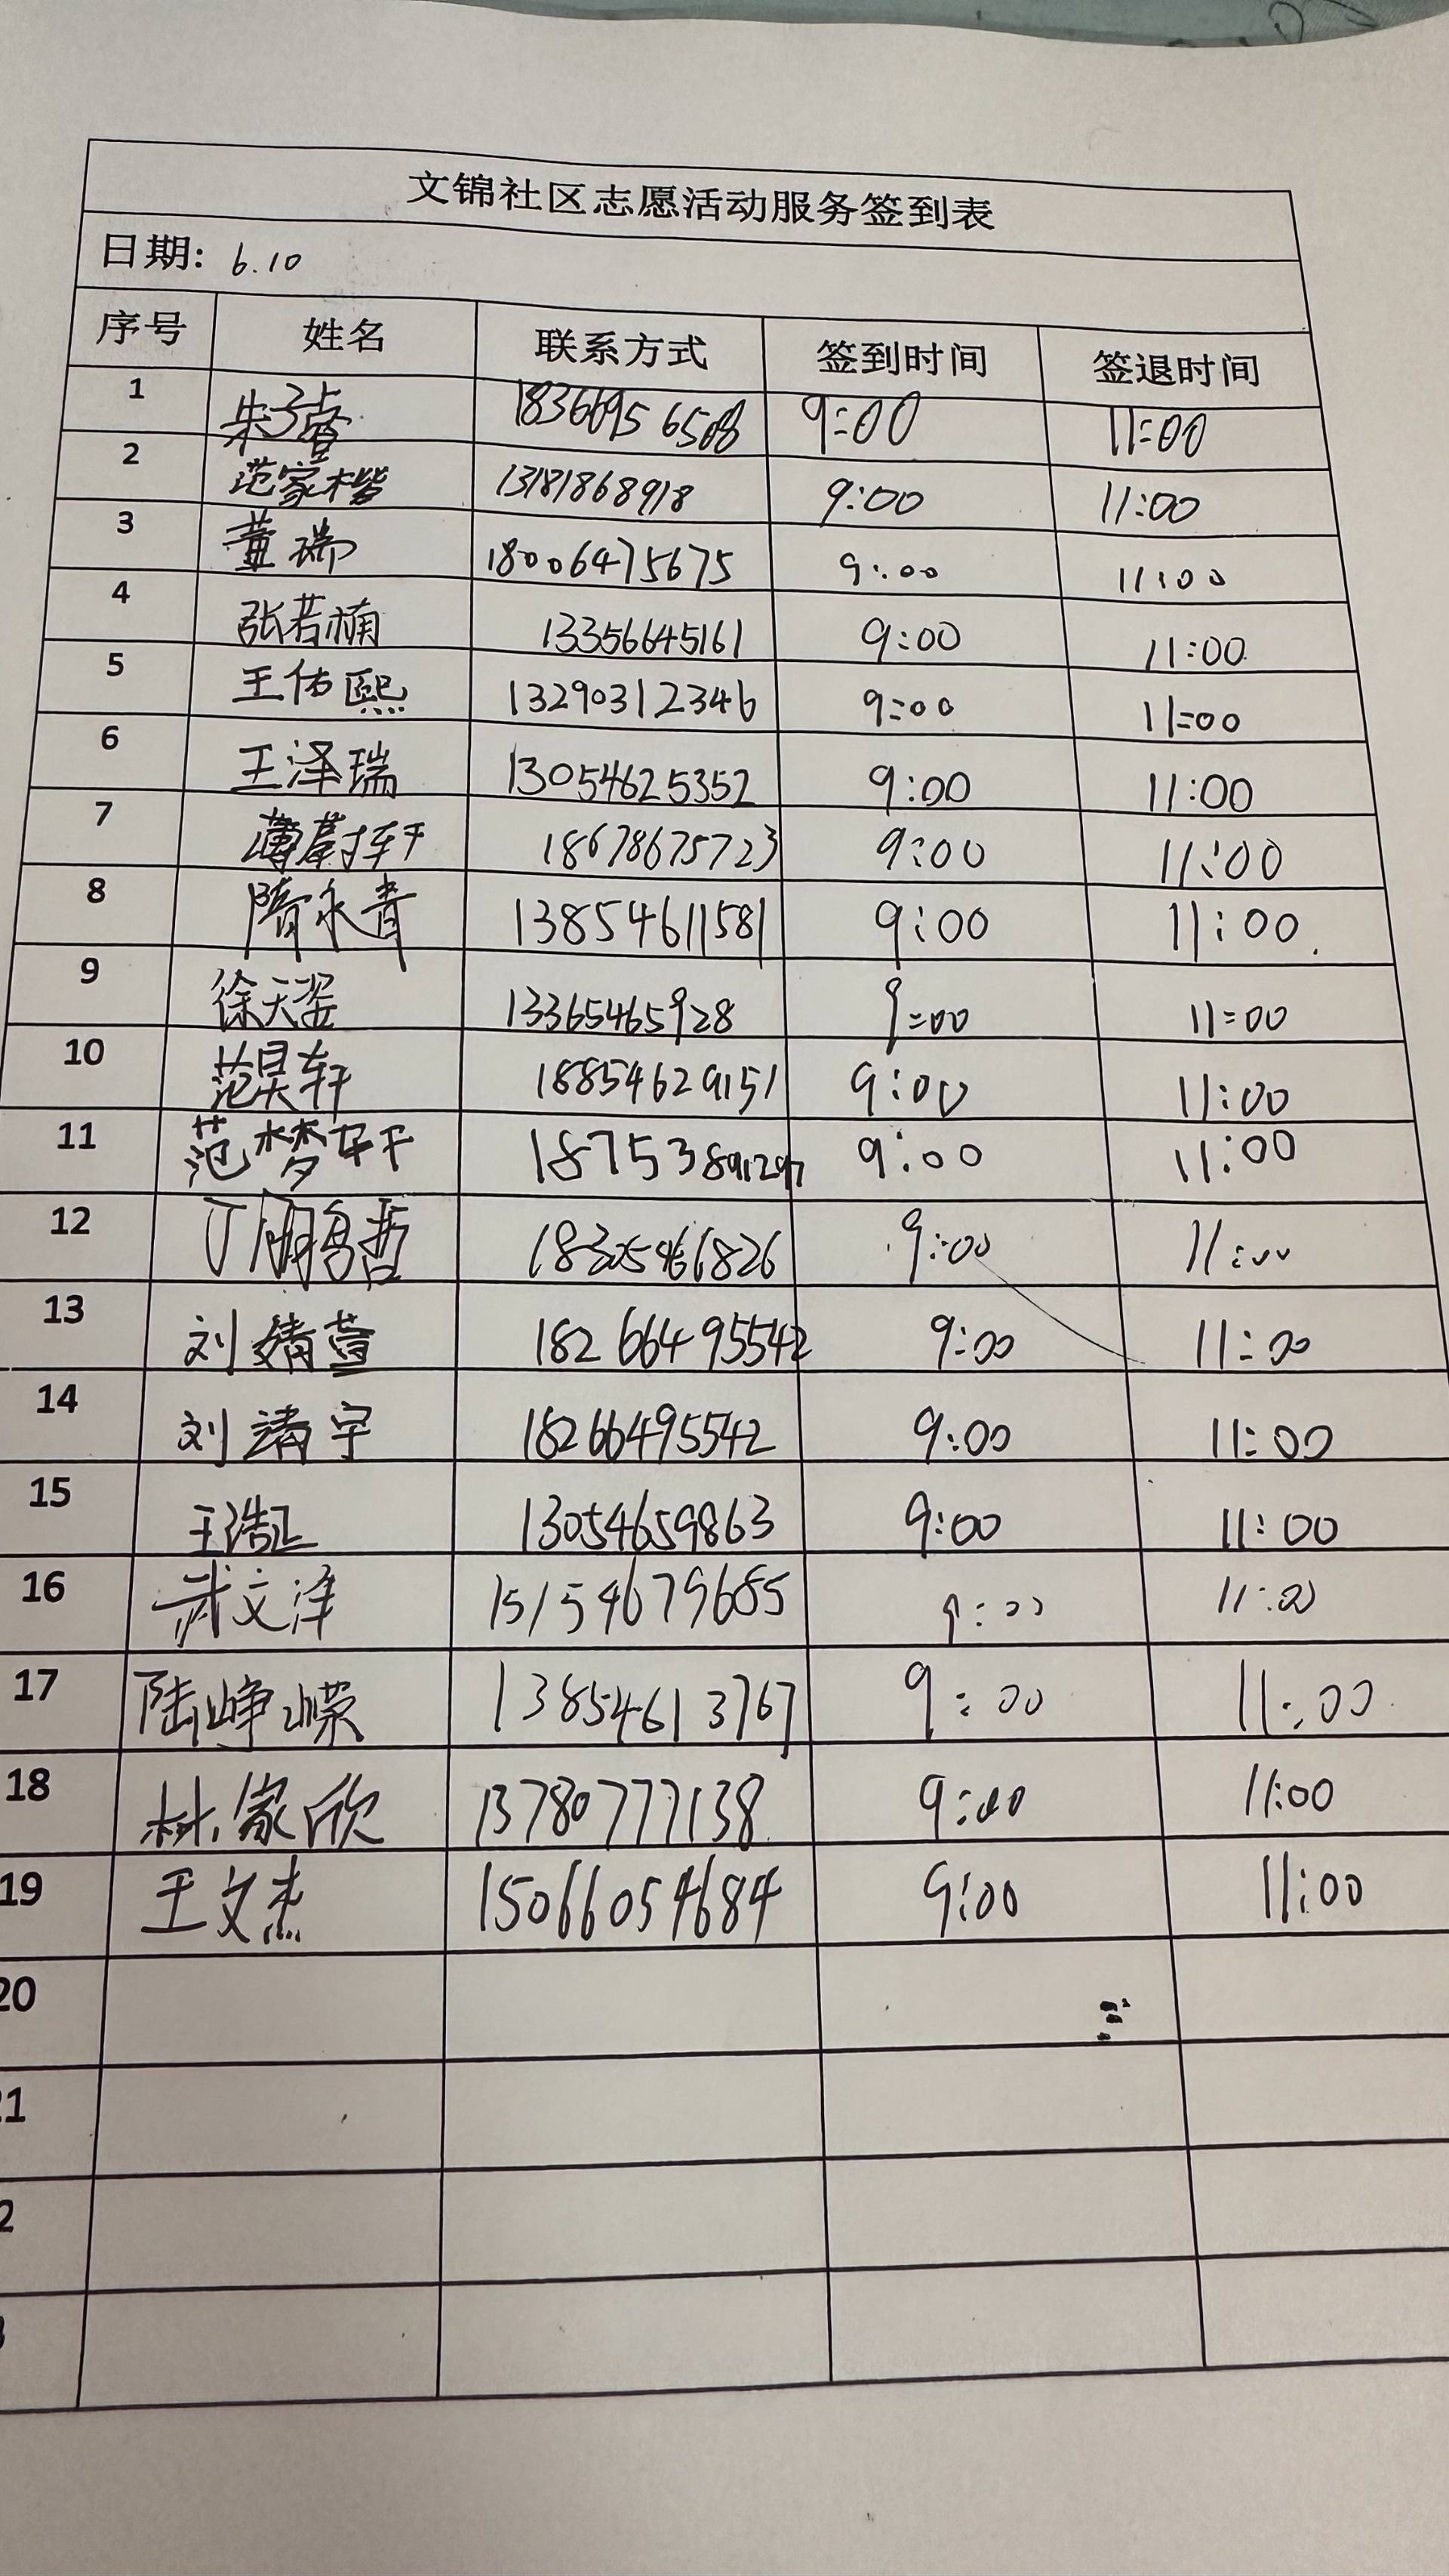 文锦社区志愿活动服务签到表
日期: 6.10
序号 姓名 联系方式 签到时间 签退时间
1 9:00 11:00
2 范家楷 13181868918 9:00 11:00
3 董瑞 18006475675 9:00 11:00
4 张若楠 13356645161 9:00 11:00
5 王佑熙 13290312346 9:00 11:00
6 王泽瑞 13054625352 9:00 11:00
7 薄蔚轩 18678675723 9:00 11:00
8 隋永青 13854611581 9:00 11:00
9 徐天姿 13365465928 9:00 11:00
10 范昊轩 18854629151 9:00 11:00
11 范梦轩 9:00 11:00
12 9:00 11:00
13 刘婧萱 18266495542 9:00 11:00
14 刘靖宇 18266495542 9:00 11:00
15 王浩正 13054659863 9:00 11:00
16 武文泽 15154679685 9:00 11:00
17 陆峥嵘 13854613767 9:00 11:00
18 林家欣 13780777138 9:00 11:00
19 王文杰 15066054684 9:00 11:00
20